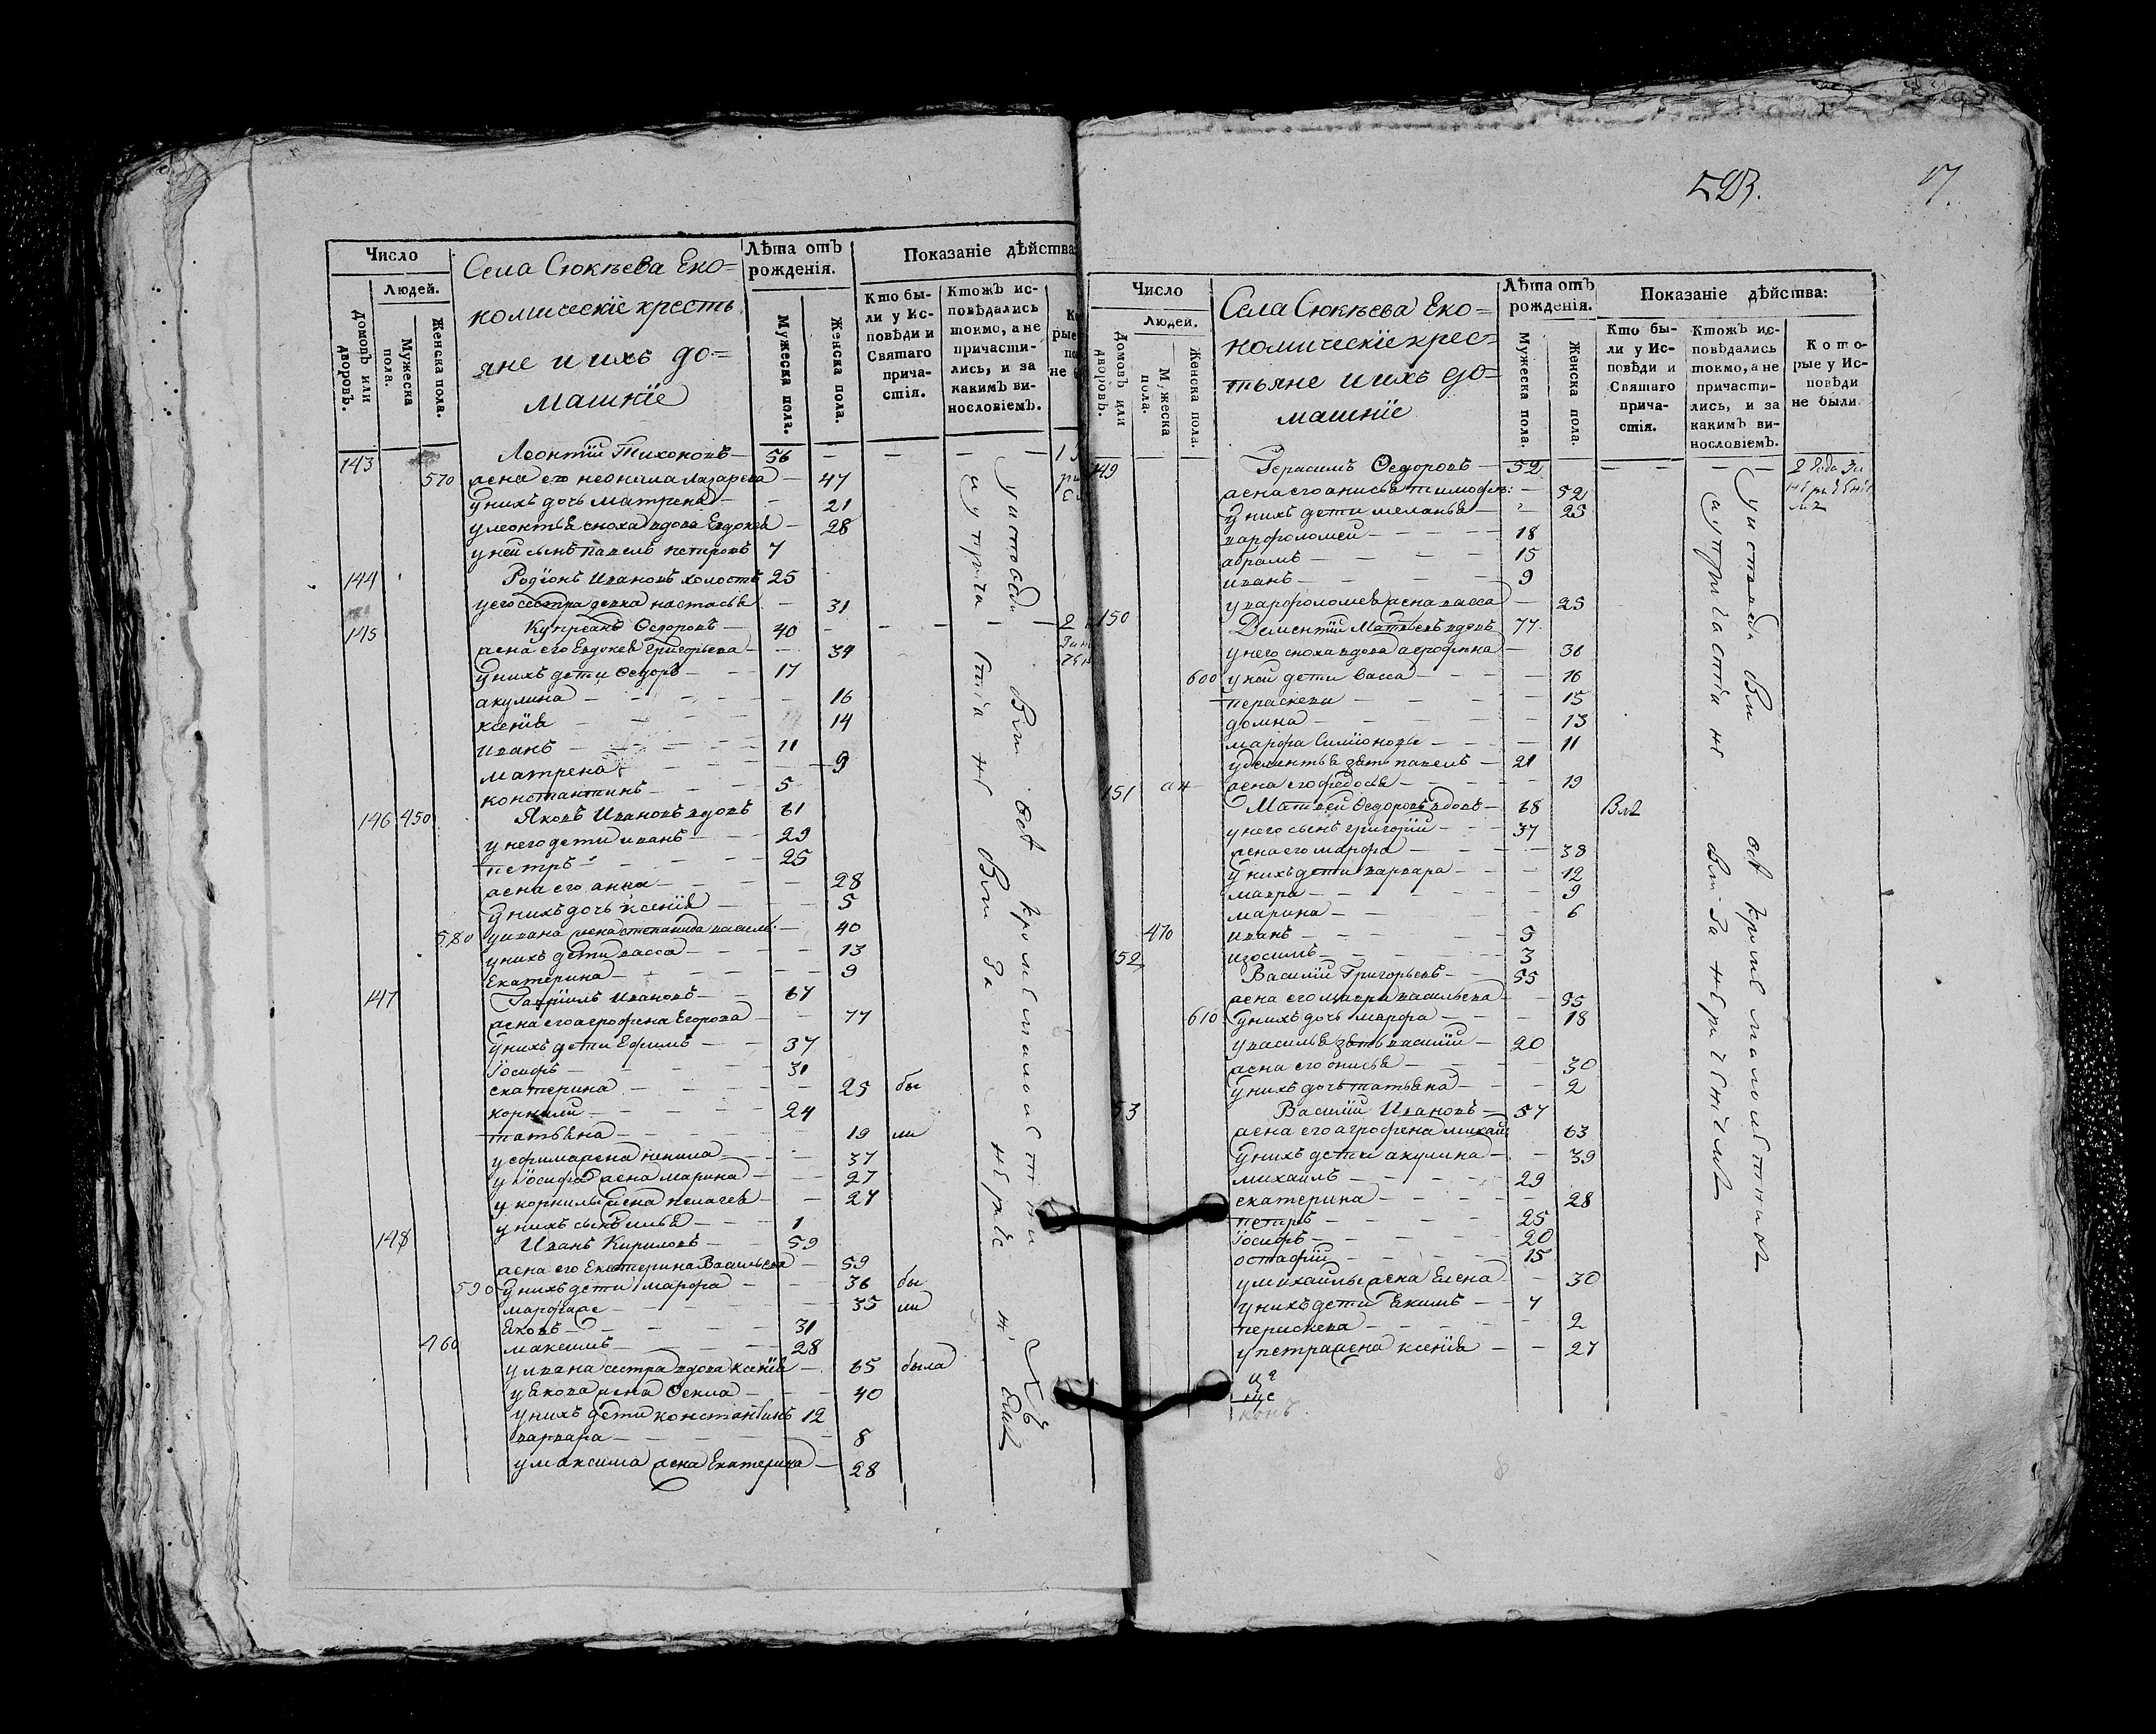 Число
Людей.
Домовъ или дворовъ.
Мужеска пола.
Женска пола.
Села Сюкѣева Еко=
номическїе кресть
яне и ихъ до=
машнїе
Лѣта отъ рожденія.
Мужеска пола.
Женска пола.
Показаніе дѣйства
Кто бы-
ли у Ис-
повѣди и
Святаго
прича-
стія.
Ктожъ ис-
повѣдались
токмо, а не
причасти-
лись, и за
какимъ ви-
нословіемъ.
143 Леонтїй Тихоновъ — 56
570 жена его неонила Лазарева — 47
у нихъ дочь Матрена — 21
у леонтья сноха вдова Евдокея — 28
у ней сынъ павелъ петровъ 7
144 Родїонъ Ивановъ холостъ 25
у его сестра девка настасья — 31
145 Купреанъ Ѳедоровъ — 40
жена его Евдокея Григорьева — 39
у нихъ дети Ѳедоръ — 17
акулина — 16
ксенїя — 14
иванъ — 11
матрена — 9
константинъ — 5
146 450 Яковъ Ивановъ вдовъ 61
у него дети иванъ — 29
петръ — 25
жена его анна — 28
у нихъ дочь ксенїя — 5
580 у ивана жена степанида васильи: — 40
у нихъ дети васса — 13
Екатерина — 9
147 Гаврїилъ Ивановъ — 67
жена его агрофена Егорова — 77
у нихъ дети Ефимъ — 37
Їосифъ — 31
екатерина — 25 бы
корнили — 24
татьяна — 19 ли
у ефима жена ненила — 37
у Їосифа жена марина — 27
у корнилы жена пелагея — 27
у нихъ сынъ илья — 1
148 Иванъ Кириловъ — 59
жена его Екатерина Васильева — 59
590 у нихъ дети марфа — 36 бы
марфа же — 35 ли
Яковъ — 31
460 максимъ — 28
у ивана сестра вдова ксенїя — 65 была
у Якова жена Ѳекла — 40
у нихъ дети константинъ 12
варвара — 8
у максима жена Екатерина — 28
у исповѣди
523.
17.
Число
Людей.
Домовъ или дворовъ.
Мужеска пола.
Женска пола.
Села Сюкѣева Еко=
номическїе крес=
тьяне и ихъ до=
машнїе
Лѣта отъ рожденія.
Мужеска пола.
Женска пола.
Показаніе дѣйства:
Кто бы-
ли у Ис-
повѣди и
Святаго
прича-
стія.
Ктожъ ис-
повѣдались
токмо, а не
причасти-
лись, и за
какимъ ви-
нословіемъ.
Кото-
рые у Ис-
повѣди
не были
149 Герасимъ Ѳедоровъ — 52
жена его анисья тимофѣе: — 52
у нихъ дети меланья — 25
варфоломей — 18
абрамъ — 15
иванъ — 9
у варфоломея жена васса — 25
150 Дементїй Матвѣевъ вдовъ 77
у него сноха вдова агрофена — 36
600 у ней дети васса — 16
пераскева — 15
домна — 13
марфа Симїоновы — 11
у дементья зять павелъ — 21
жена его федосья — 19
151 Матвей Ѳедоровъ вдовъ — 68
у него сынъ григорїй — 37
жена его марфа — 38
у нихъ дети варвара — 12
мавра — 9
марина — 6
470 иванъ — 5
изосимъ — 3
152 Василїй Григорьевъ — 55
жена его мавра васильева — 55
610 у нихъ дочь марфа — 18
у василья зять василїй — 20
жена его онисья — 30
у нихъ дочь татьяна — 2
53 Василїй Ивановъ — 57
жена его агрофена михаи: 63
у нихъ дети акулина — 39
михаилъ — 29
екатерина — 28
петръ — 25
Їосифъ — 20
остафїй — 15
у михайлы жена Елена — 30
у нихъ дети Якимъ — 7
перискева — 2
у петра жена ксенїя — 27
у исповѣди
всѣ кромѣ малолѣтнихъ